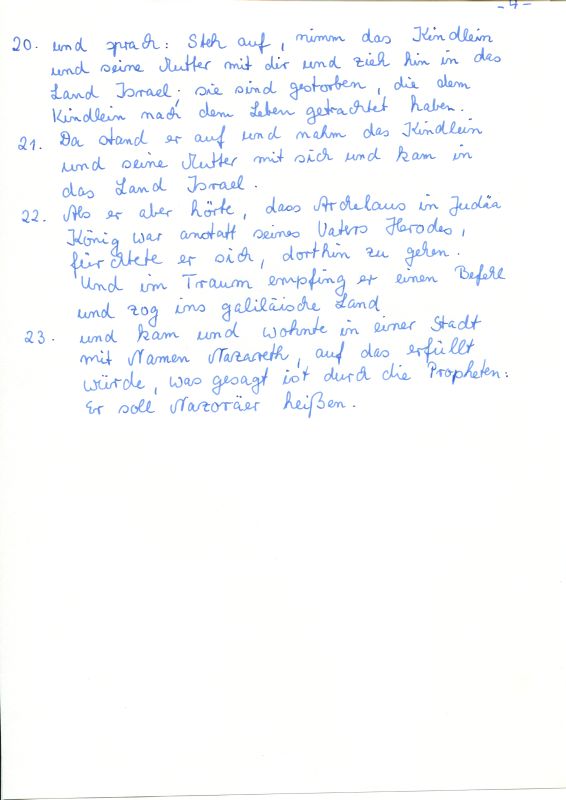 - 4 -
20. und sprach: Steh auf, nimm das Kindlein
und seine Mutter mit dir und zieh hin in das
Land Israel; sie sind gestorben, die dem
Kindlein nach dem Leben getrachtet haben.
21. Da stand er auf und nahm das Kindlein
und seine Mutter mit sich und kam in
das Land Israel.
22. Als er aber hörte, dass Archelaus in Judäa
König war anstatt seines Vaters Herodes,
fürchtete er sich, dorthin zu gehen.
Und im Traum empfing er einen Befehl
und zog ins galiläische Land
23. und kam und wohnte in einer Stadt
mit Namen Nazareth, auf das erfüllt
würde, was gesagt ist durch die Propheten:
Er soll Nazoräer heißen.